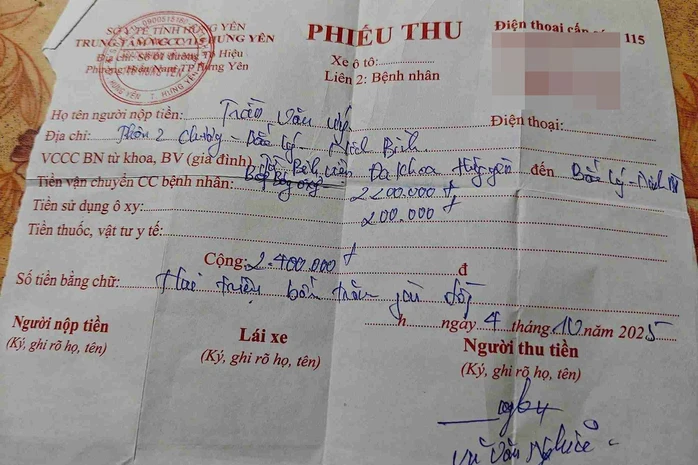 SỞ Y TẾ TỈNH HƯNG YÊN
TRUNG TÂM VCCC 115 HƯNG YÊN
Địa chỉ: Số 01 đường Tô Hiệu
Phường Hiến Nam TP Hưng Yên
PHIẾU THU
Xe ô tô:
Liên 2: Bệnh nhân
Điện thoại cấp 115
Họ tên người nộp tiền: Trần Văn Điện thoại:
Địa chỉ: Thôn 2 - Bắc Lý - Ninh Bình
VCCC BN từ khoa, BV (gia đình) Bệnh viện Đa khoa Hưng yên đến Bắc Lý - Ninh
Tiền vận chuyển CC bệnh nhân: 2200.000đ
Tiền sử dụng ô xy: 200.000đ
Tiền thuốc, vật tư y tế:
Cộng: 2.400.000đ đ
Số tiền bằng chữ: Hai triệu bốn trăm đồng
h ngày 4 tháng 10 năm 2025
Người nộp tiền
(Ký, ghi rõ họ, tên)
Lái xe
(Ký, ghi rõ họ, tên)
Người thu tiền
(Ký, ghi rõ họ, tên)
Vũ Văn